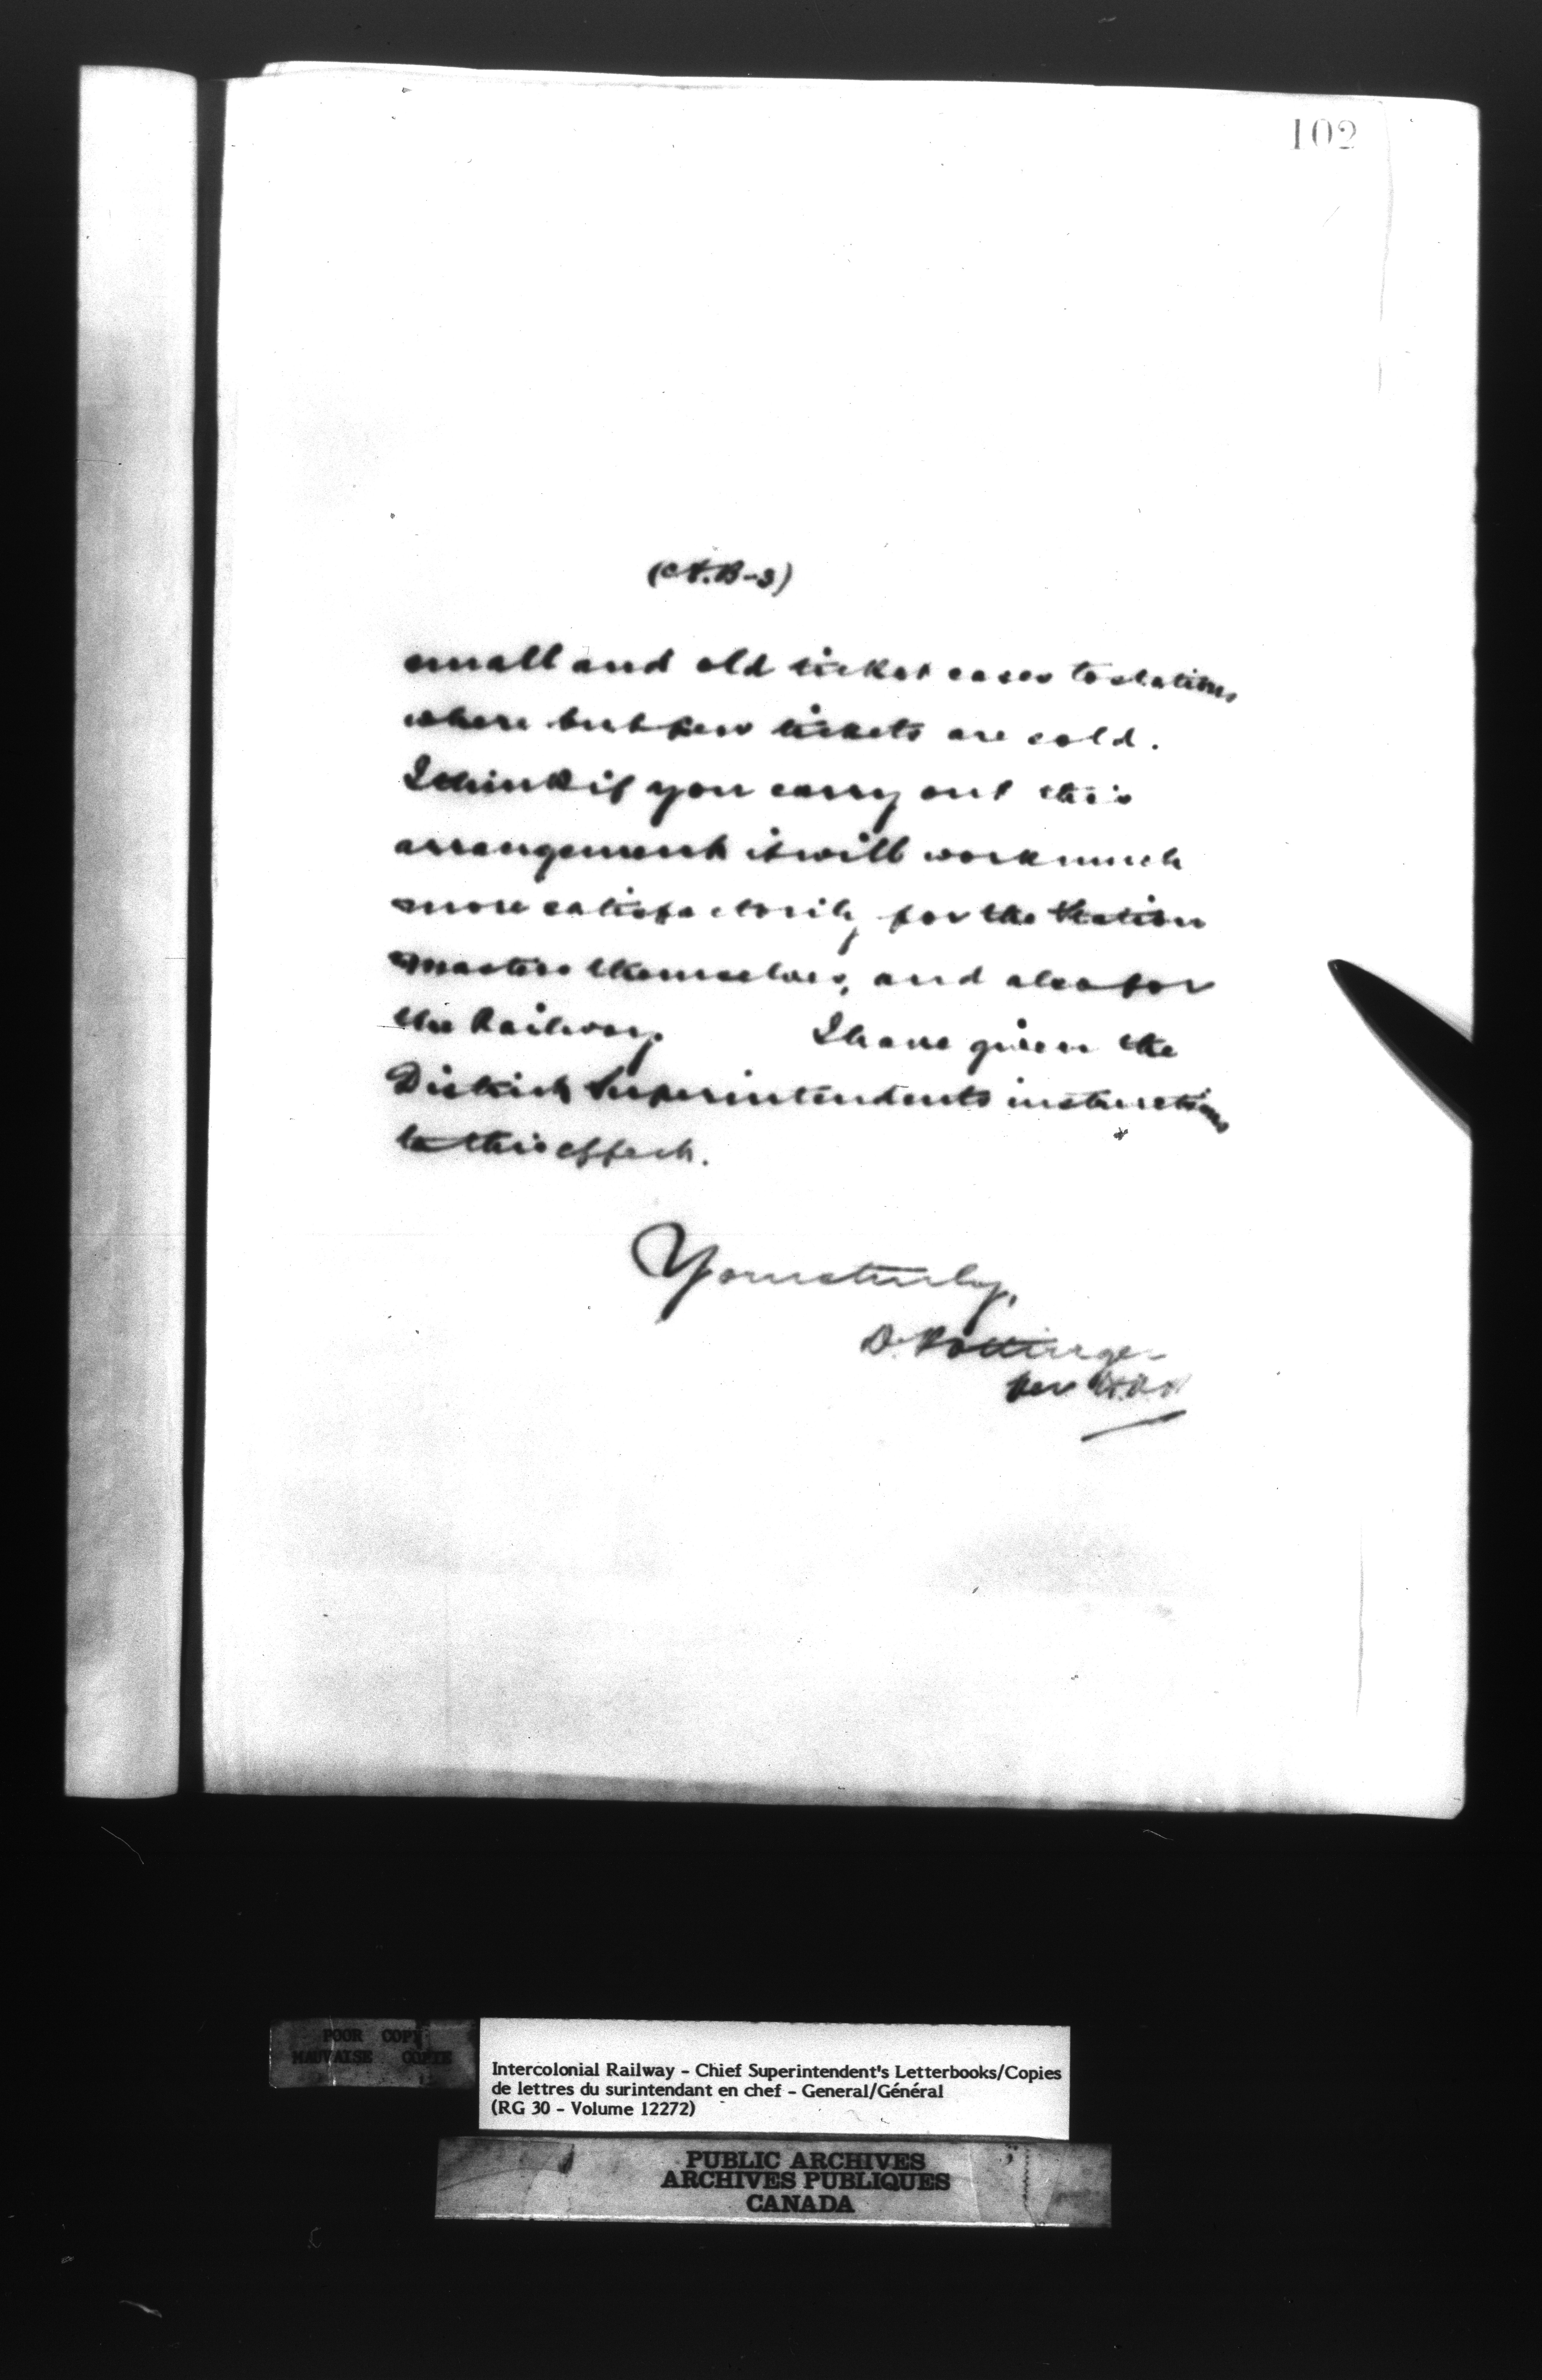 102
(A.B-3)
small and old ticket cases to stations
where but few tickets are sold.
I think if you carry out this
arrangement it will work much
more satisfactorily for the Station
Masters themselves, and also for
the Railway. I have given the
District Superintendents instructions
to this effect.
Yours truly,
D. Pottinger
per
POOR COPY
MAUVAISE COPIE
Intercolonial Railway - Chief Superintendent's Letterbooks/Copies
de lettres du surintendant en chef - General/Général
(RG 30 - Volume 12272)
PUBLIC ARCHIVES
ARCHIVES PUBLIQUES
CANADA